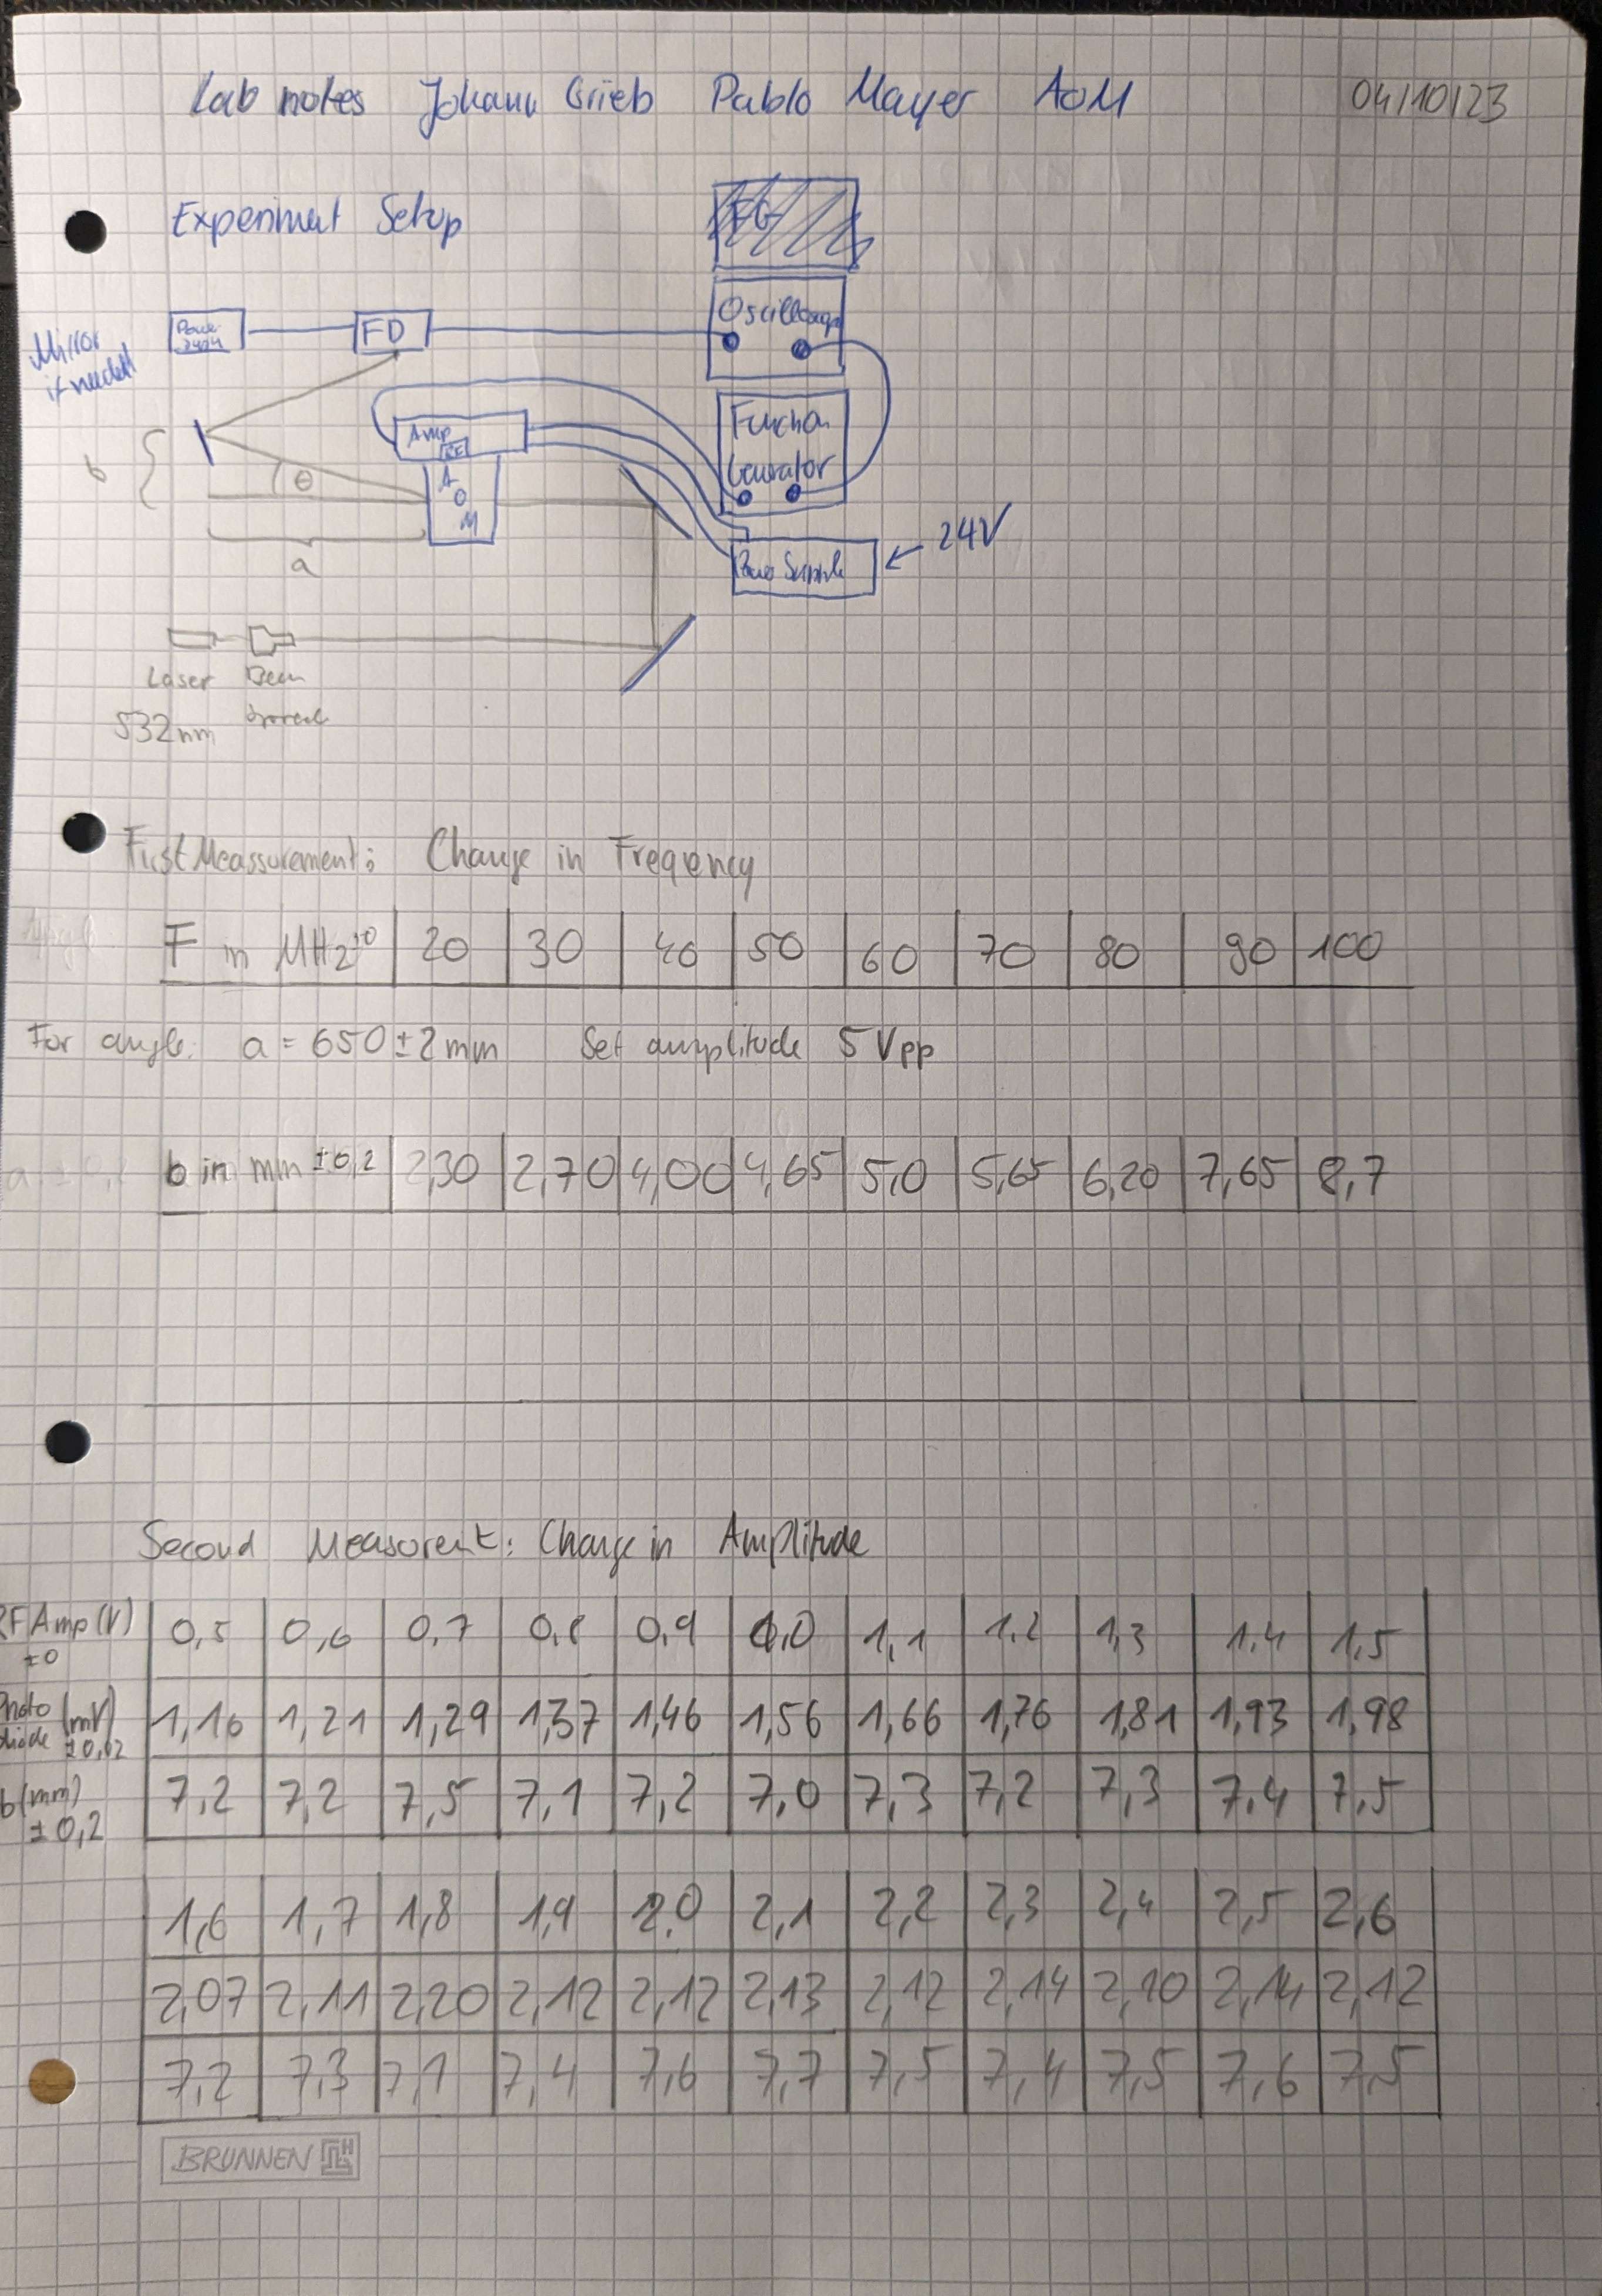 Lab notes Johann Grieb Pablo Mayer AOM 04/10/23
Experiment Setup
FG
Oscilloscope
Power
FD
Mirror
if needed
Amp
RF
Function
Generator
b
θ
A
O
M
24V
Power Supply
a
Laser Beam
532nm
First Meassurement: Change in Freqency
F in MHz ±0 20 30 40 50 60 70 80 90 100
For angle: a = 650 ± 2 mm Set amplitude 5 Vpp
b in mm ±0,2 2,30 2,70 4,00 4,65 5,0 5,65 6,20 7,65 8,7
Second Measurent: Change in Amplitude
RF Amp (V) 0,5 0,6 0,7 0,8 0,9 1,0 1,1 1,2 1,3 1,4 1,5
±0
Photo (mV) 1,16 1,21 1,29 1,37 1,46 1,56 1,66 1,76 1,81 1,93 1,98
diode ±0,02
b (mm) 7,2 7,2 7,5 7,1 7,2 7,0 7,3 7,2 7,3 7,4 7,5
±0,2
1,6 1,7 1,8 1,9 2,0 2,1 2,2 2,3 2,4 2,5 2,6
2,07 2,11 2,20 2,12 2,12 2,13 2,12 2,14 2,10 2,14 2,12
7,2 7,3 7,1 7,4 7,6 7,7 7,5 7,4 7,5 7,6 7,5
BRUNNEN